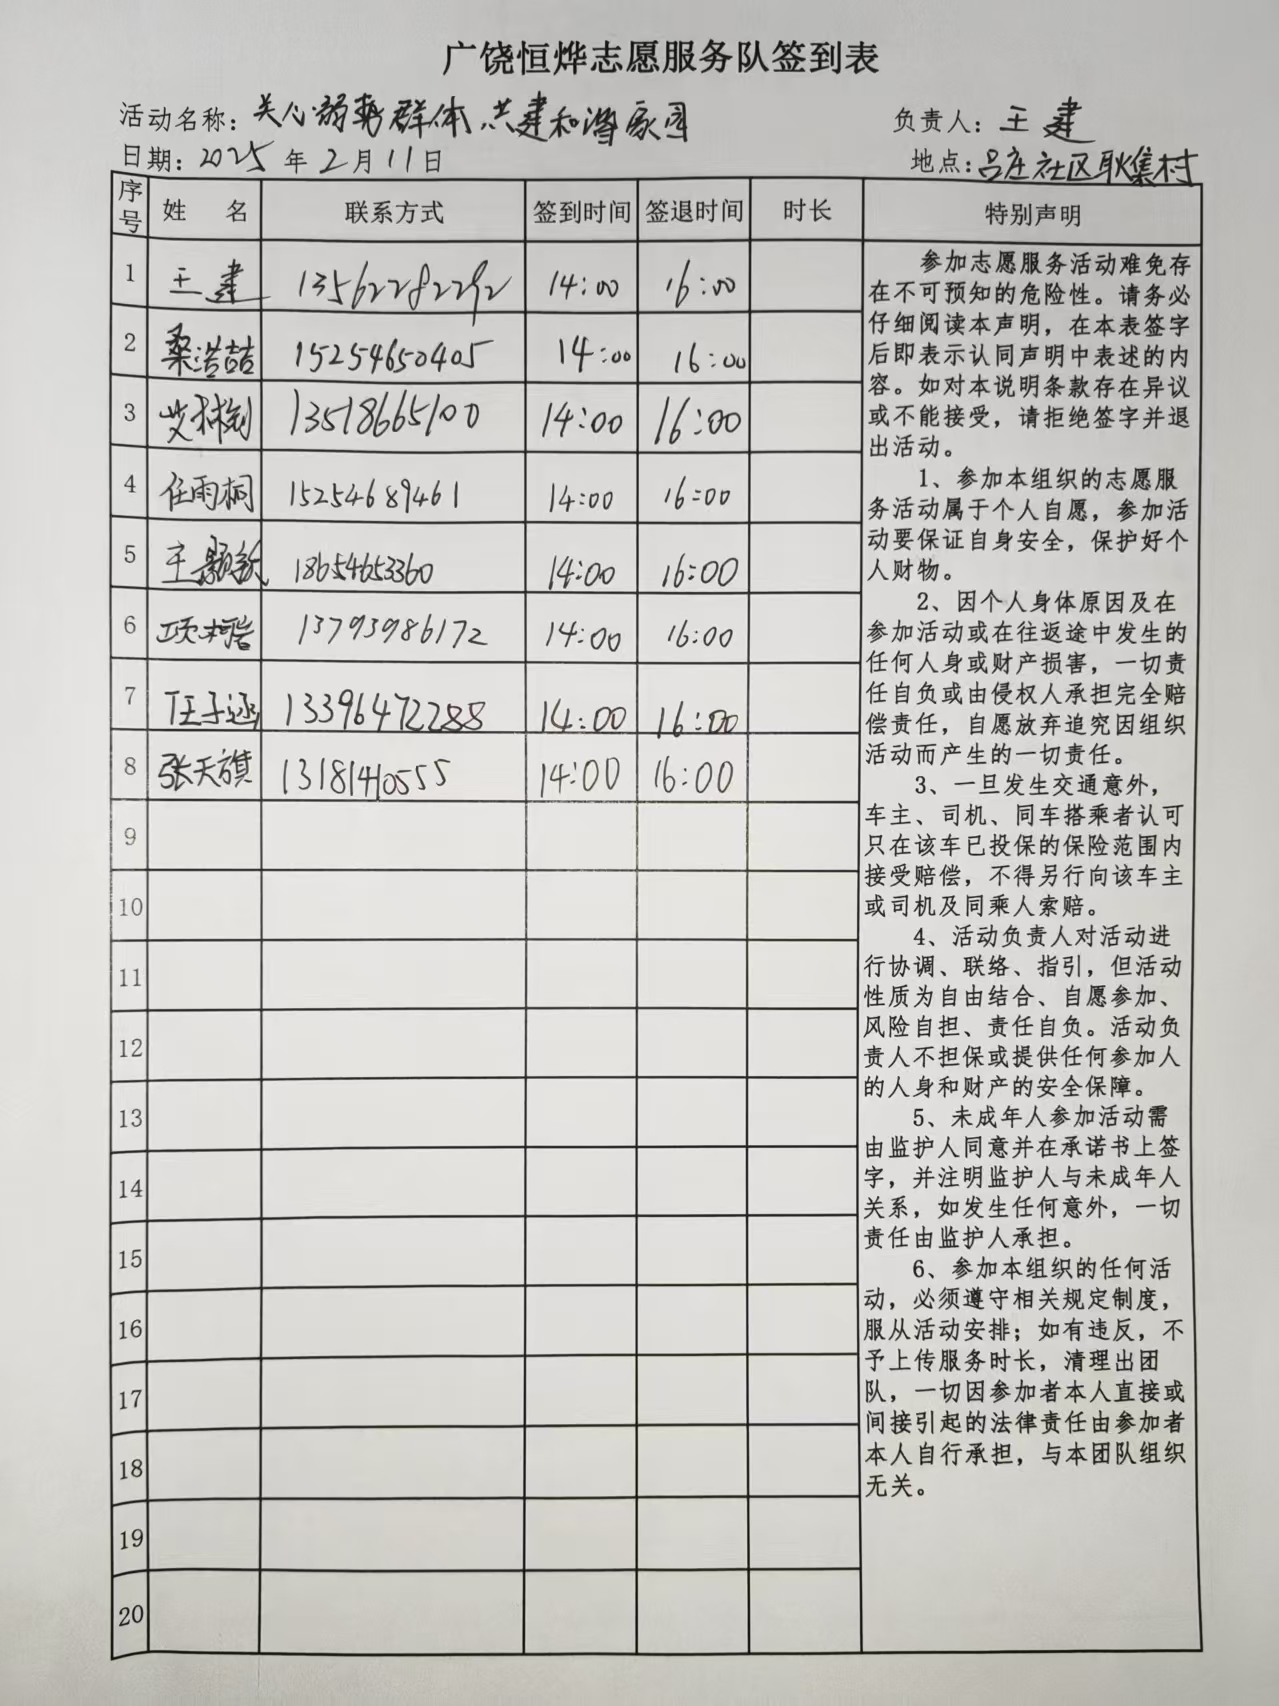 广饶恒烨志愿服务队签到表
活动名称：关心弱势群体，共建和谐家园 负责人：王建
日期：2025年2月11日 地点：吕庄社区耿集村
序号 姓 名 联系方式 签到时间 签退时间 时长 特别声明
1 王建 13562282292 14:00 16:00
2 桑浩喆 15254650405 14:00 16:00
3 13518665100 14:00 16:00
4 任雨桐 15254689461 14:00 16:00
5 王颢毓 18654653360 14:00 16:00
6 项柯岩 13793986172 14:00 16:00
7 任子涵 13396472288 14:00 16:00
8 张天旗 13181410555 14:00 16:00
9
10
11
12
13
14
15
16
17
18
19
20
参加志愿服务活动难免存
在不可预知的危险性。请务必
仔细阅读本声明，在本表签字
后即表示认同声明中表述的内
容。如对本说明条款存在异议
或不能接受，请拒绝签字并退
出活动。
1、参加本组织的志愿服
务活动属于个人自愿，参加活
动要保证自身安全，保护好个
人财物。
2、因个人身体原因及在
参加活动或在往返途中发生的
任何人身或财产损害，一切责
任自负或由侵权人承担完全赔
偿责任，自愿放弃追究因组织
活动而产生的一切责任。
3、一旦发生交通意外，
车主、司机、同车搭乘者认可
只在该车已投保的保险范围内
接受赔偿，不得另行向该车主
或司机及同乘人索赔。
4、活动负责人对活动进
行协调、联络、指引，但活动
性质为自由结合、自愿参加、
风险自担、责任自负。活动负
责人不担保或提供任何参加人
的人身和财产的安全保障。
5、未成年人参加活动需
由监护人同意并在承诺书上签
字，并注明监护人与未成年人
关系，如发生任何意外，一切
责任由监护人承担。
6、参加本组织的任何活
动，必须遵守相关规定制度，
服从活动安排；如有违反，不
予上传服务时长，清理出团
队，一切因参加者本人直接或
间接引起的法律责任由参加者
本人自行承担，与本团队组织
无关。